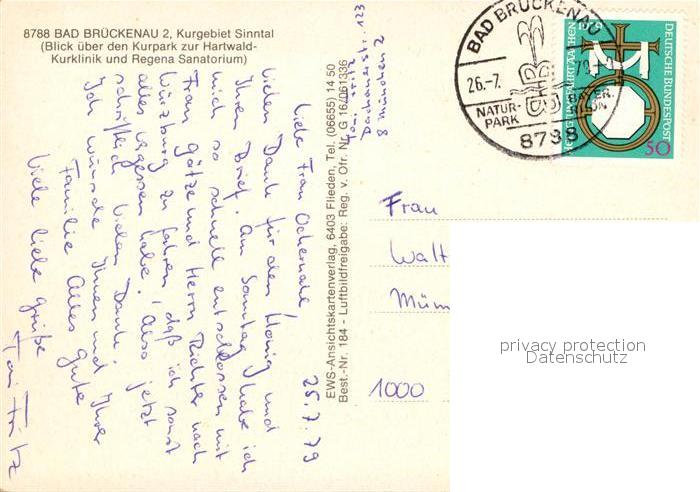 8788 BAD BRÜCKENAU 2, Kurgebiet Sinntal
(Blick über den Kurpark zur Hartwald-
Kurklinik und Regena Sanatorium)
25.7.79
Liebe Frau
vielen Dank für den Honig und
Ihren Brief. Am Sonntag habe ich
mich so schnell entschlossen mit
Frau Götze und Herrn Richter nach
Würzburg zu fahren, daß ich sonst
alles vergessen habe. Also jetzt
schriftlich vielen Dank.
Ich wünsche Ihnen und Ihrer
Familie Alles Gute
Viele liebe Grüße
Toni Fritz
EWS-Ansichtskartenverlag, 6403 Flieden, Tel. (06655) 14 50
Best.-Nr. 184 - Luftbildfreigabe: Reg. v. Ofr. Nr. G 16/061336
Toni Fritz
Dachauerstr. 123
8 München 2
BAD BRÜCKENAU
26.-7.
79
NATUR-
PARK
BAYER.
RHÖN
8788
1979
HEILIGTUMSFAHRT AACHEN
DEUTSCHE BUNDESPOST
50
Frau
Walt
Mün
1000
privacy protection
Datenschutz